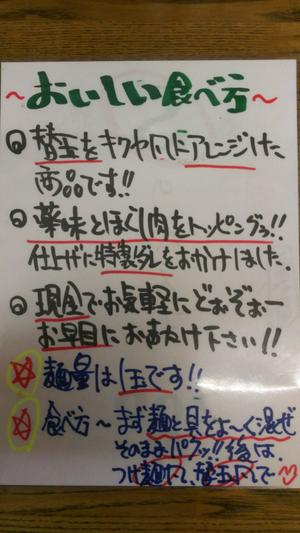 ~おいしい食べ方~
◎替玉をキクヤ风にアレンジした
商品です!!
◎薬味とほぐし肉をトッピングっ!!
仕上げに特製ダレをおかけしました.
◎現金でお気軽にどぉぞぉー
お早目にお声かけ下さい!!
☆麺量は1玉です!!
☆食べ方~まず麺と具をよ~く混ぜ
そのままパクッ!!後は、
つけ麺に、替玉に で♡